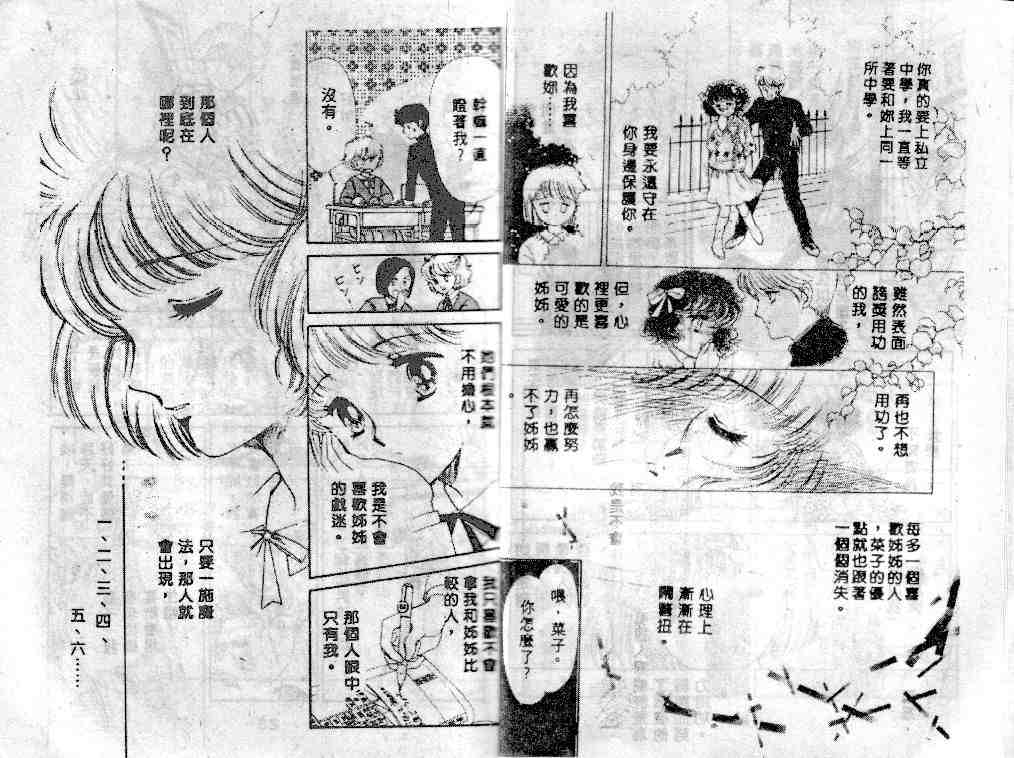 你真的要上私立
中學，我一直等
著要和妳上同一
所中學。
我要永遠守在
你身邊保護你。
因為我喜
歡妳……
雖然表面
誇獎用功
的我，
但，心
裡更喜
歡的是
可愛的
姊姊。
再也不想
用功了。
再怎麼努
力，也贏
不了姊姊
。
每多一個喜
歡姊姊的人
，菜子的優
點就也跟著
一個個消失。
心理上
漸漸在
鬧彆扭。
喂，菜子。
你怎麼了？
幹嘛一直
瞪著我？
沒有。
ヒソ
ヒソ
不用擔心，
我是不會
喜歡姊姊
的戲迷。
我只喜歡不會
拿我和姊姊比
較的人，
那個人眼中
只有我。
那個人
到底在
哪裡呢？
只要一施魔
法，那人就
會出現，
一、二、三、四、
五、六……